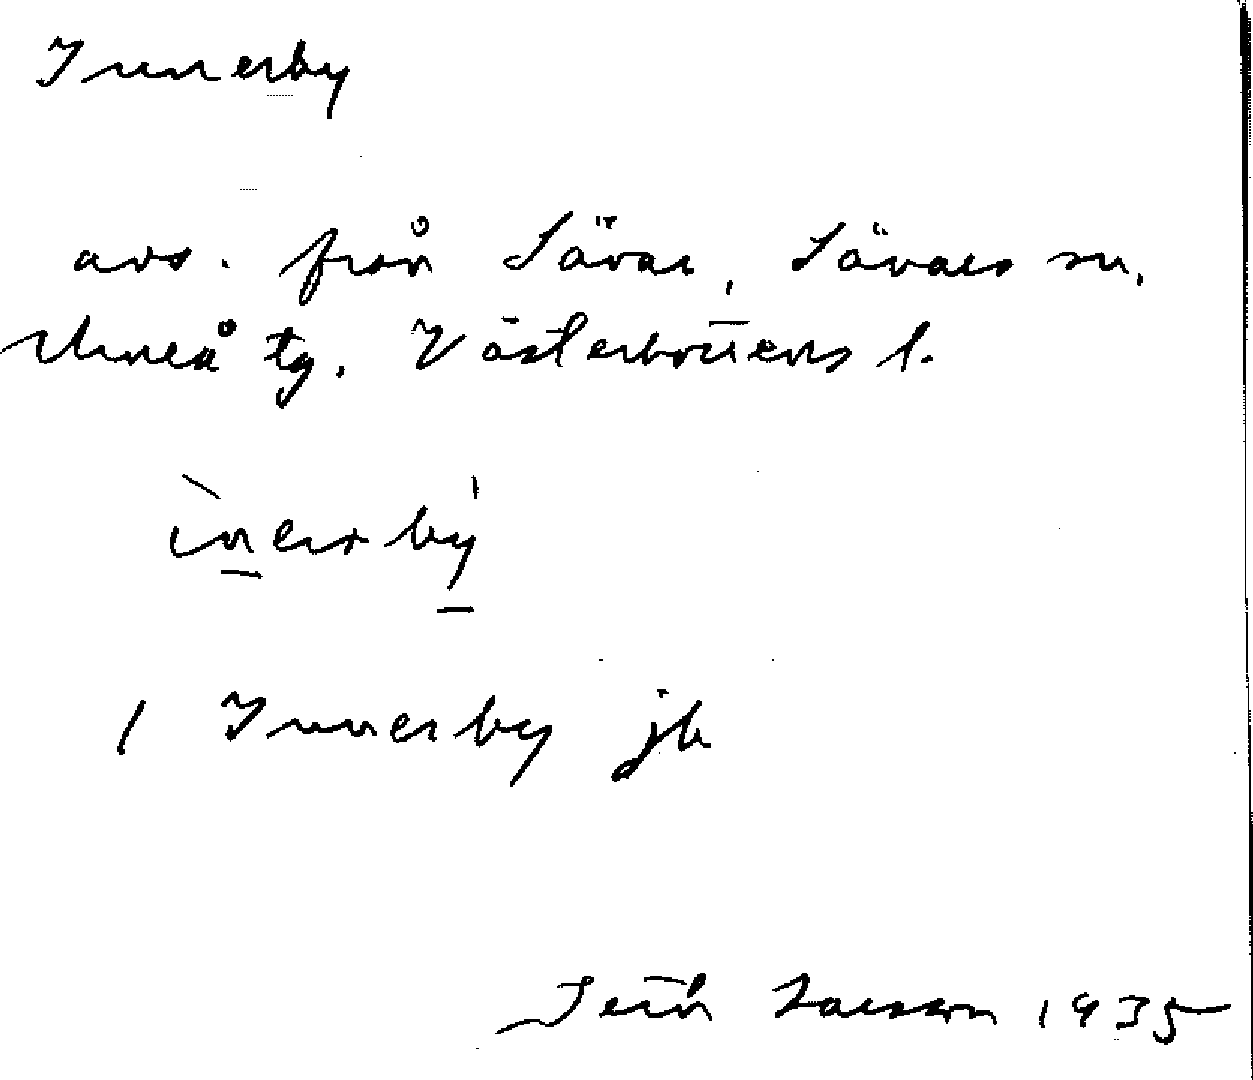 Innerby
avs. från Sävar, Sävars sn,
Umeå tg. Västerbottens l.
ìnerbý
1 Innerby jb
Larsson 1935